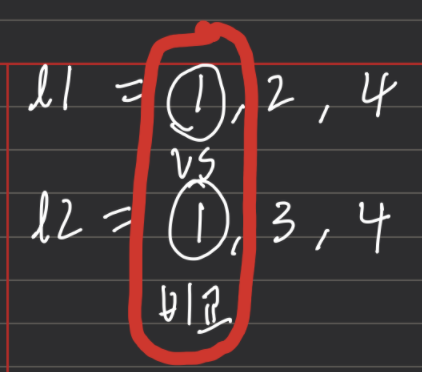 l1 = 1, 2, 4
vs
l2 = 1, 3, 4
비교